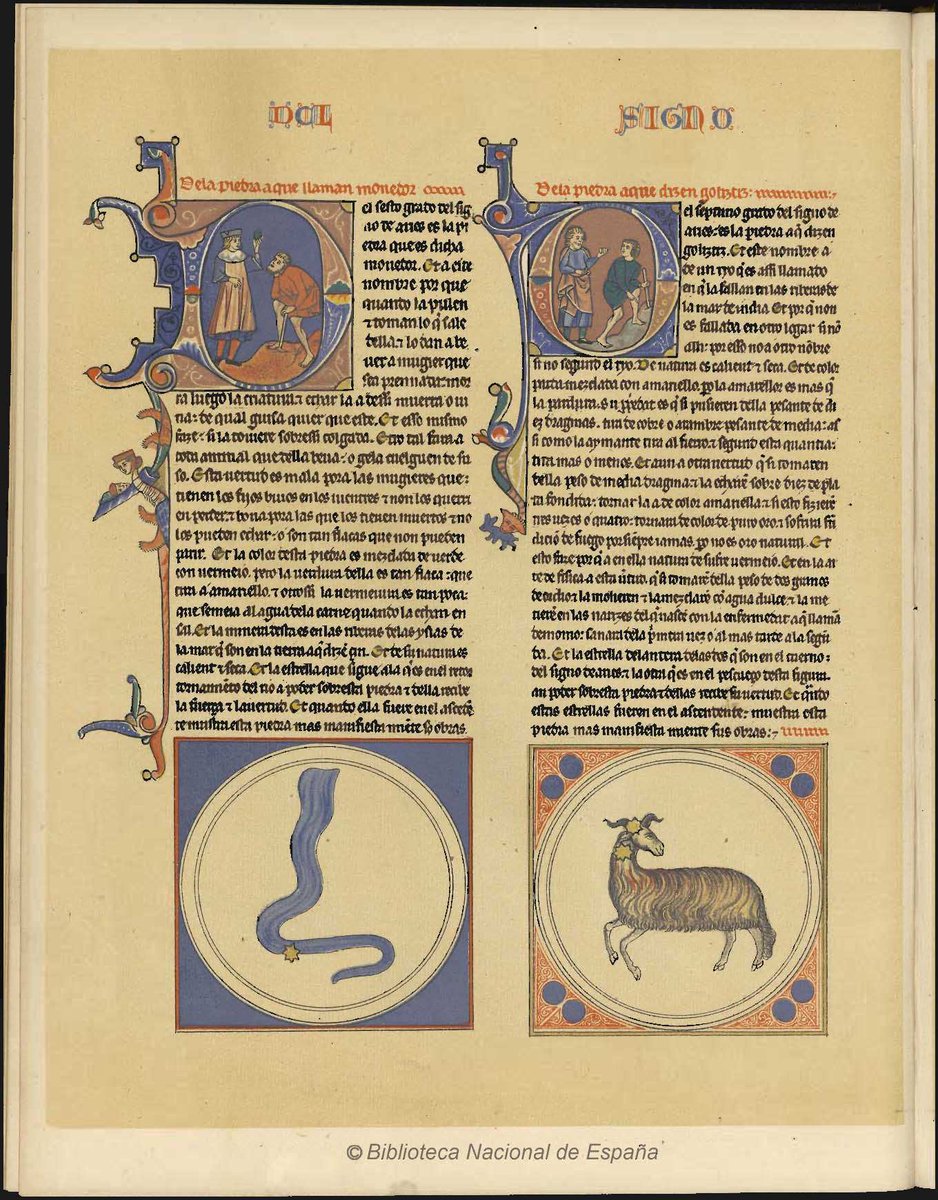 DEL
SIGNO
De la piedra a que llaman monetor
el sesto grado del sig
no de aries es la pi
edra que es dicha
monetor. Et a este
nombre por que
quanto la pulen
⁊ toman lo q̃ sale
della ⁊ lo dan a be
uer a mugier que
sea prennada: mue
ra luego la criatura ⁊ echar la a dessi muerta o ui
ua: de qual guisa quier que este. Et esso mismo
faze si la touiere sobressi colgada. Otro tal fara a
tod animal que della beua: o gela cuelguen de su
so. Esta uertud es mala pora las mugieres que
tienen los fijos biuos en los uientres ⁊ non los quieren
perder: ⁊ bona pora las que los tienen muertos ⁊ no
los pueden echar: o son tan flacas que non pueden
parir. Et la color desta piedra es mezclada de uerde
con uermeio. pero la uerdura della es tan flaca: que
tira a amariello. ⁊ otrossi la uermeiura es tan poca:
que semeia al agua de la carne quando la echan en
sal. Et la minera desta es en las riberas de las yslas de
la mar q̃ son en la tierra a q̃ dizẽ çin. Et de su natura es
calient ⁊ seca. Et la estrella que sigue a la q̃ es en el retor
tornamiẽto del rio a poder sobresta piedra ⁊ della recibe
la fuerça ⁊ la uertud. Et quando ella fuere en el ascedẽ
te mustra esta piedra mas manifiesta miẽte sꝯ obras.
De la piedra a que dizen goliztiz:
el septimo grado del signo de
aries: es la piedra a q̃ dizen
goliztiz. Et este nombre a
de un ryo q̃ es assi llamado
en q̃ la fallan en las riberas de
la mar de india. Et por q̃ non
es fallada en otro logar si nõ
alli: por esso no a otro nõbre
si no segund el ryo. De natura es calient ⁊ seca. Et de color
parda mezclada con amariello. po la amarellor es mas q̃
la pardura. Su ppiedat es q̃ si pusieren della pesante de di
ez dragmas. tira de cobre o arambre pesante de media: as
si como la aymante tira al fierro: ⁊ segund esta quantia:
tira mas o menos. Et aun a otra uertud q̃ si tomaren
della peso de media dragma: ⁊ la echarẽ sobre diez de pla
ta fondida: tornar la a de color amariella: ⁊ si esto fizierẽ
tres uezes o quatro: tornara de color de puro oro: ⁊ sofrira fũ
dicion de fuego por siempre iamas. po no es oro natural. Et
esto faze por q̃ a en ella natura de sufre uermeio. Et en la ar
te de fisica a esta uirtud. q̃ si tomarẽ della peso de dos granos
de ordio: ⁊ la molieren ⁊ la mezclarẽ cõ agua dulce: ⁊ la me
tieren en las narizes del q̃ nasce con la enfermedat a q̃ llamã
demonio: sanara de la p̃mera uez o al mas tarde a la segũ
da. Et la estrella delantera de las dos q̃ son en el cuerno:
del signo de aries: ⁊ la otra q̃ es en el pescueço desta figura
an poder sobresta piedra: ⁊ dellas recibe su uertud. Et q̃ndo
estas estrellas fueren en el ascendente: muestra esta
piedra mas manifiesta miente sus obras:
© Biblioteca Nacional de España